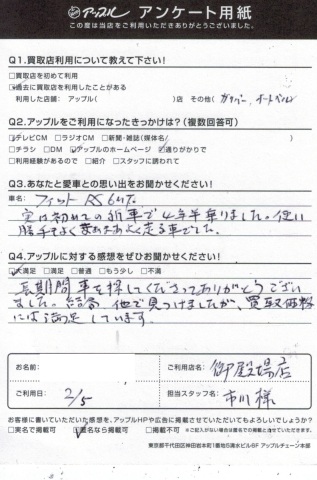 アップル アンケート用紙
この度は当店をご利用いただきありがとうございました。
Q1.買取店利用について教えて下さい!
□買取店を初めて利用
☑過去に買取店を利用したことがある
利用した店舗: アップル( )店 その他( ガリバー、オートベル
Q2.アップルをご利用になったきっかけは?(複数回答可)
☑テレビCM □ラジオCM □新聞・雑誌(媒体名/ )
□チラシ □DM ☑アップルのホームページ ☑通りがかりで
□利用経験があるので □紹介 □スタッフに誘われて
Q3.あなたと愛車との思い出をお聞かせください!
車名: フィット RS 6MT。
実は初めての新車で4年半乗りました。使い
勝手もよくまあまあよく走る車でした。
Q4.アップルに対する感想をぜひお聞かせください!
☑大満足 □満足 □普通 □もう少し □不満
長期間車を探してくださってありがとうござい
ました。結局、他で見つけましたが、買取価格
には満足しています。
お名前:
ご利用店名: 御殿場店
ご利用日: 2/5
担当スタッフ名: 市川様
お客様に書いていただいた感想を、アップルHPや広告に掲載させていただいてもよろしいでしょうか?
□実名で掲載可 ☑匿名なら掲載可 ※ご記入がない場合は匿名での掲載とさせていただきます。
東京都千代田区神田岩本町1番地5清水ビル8F アップルチェーン本部